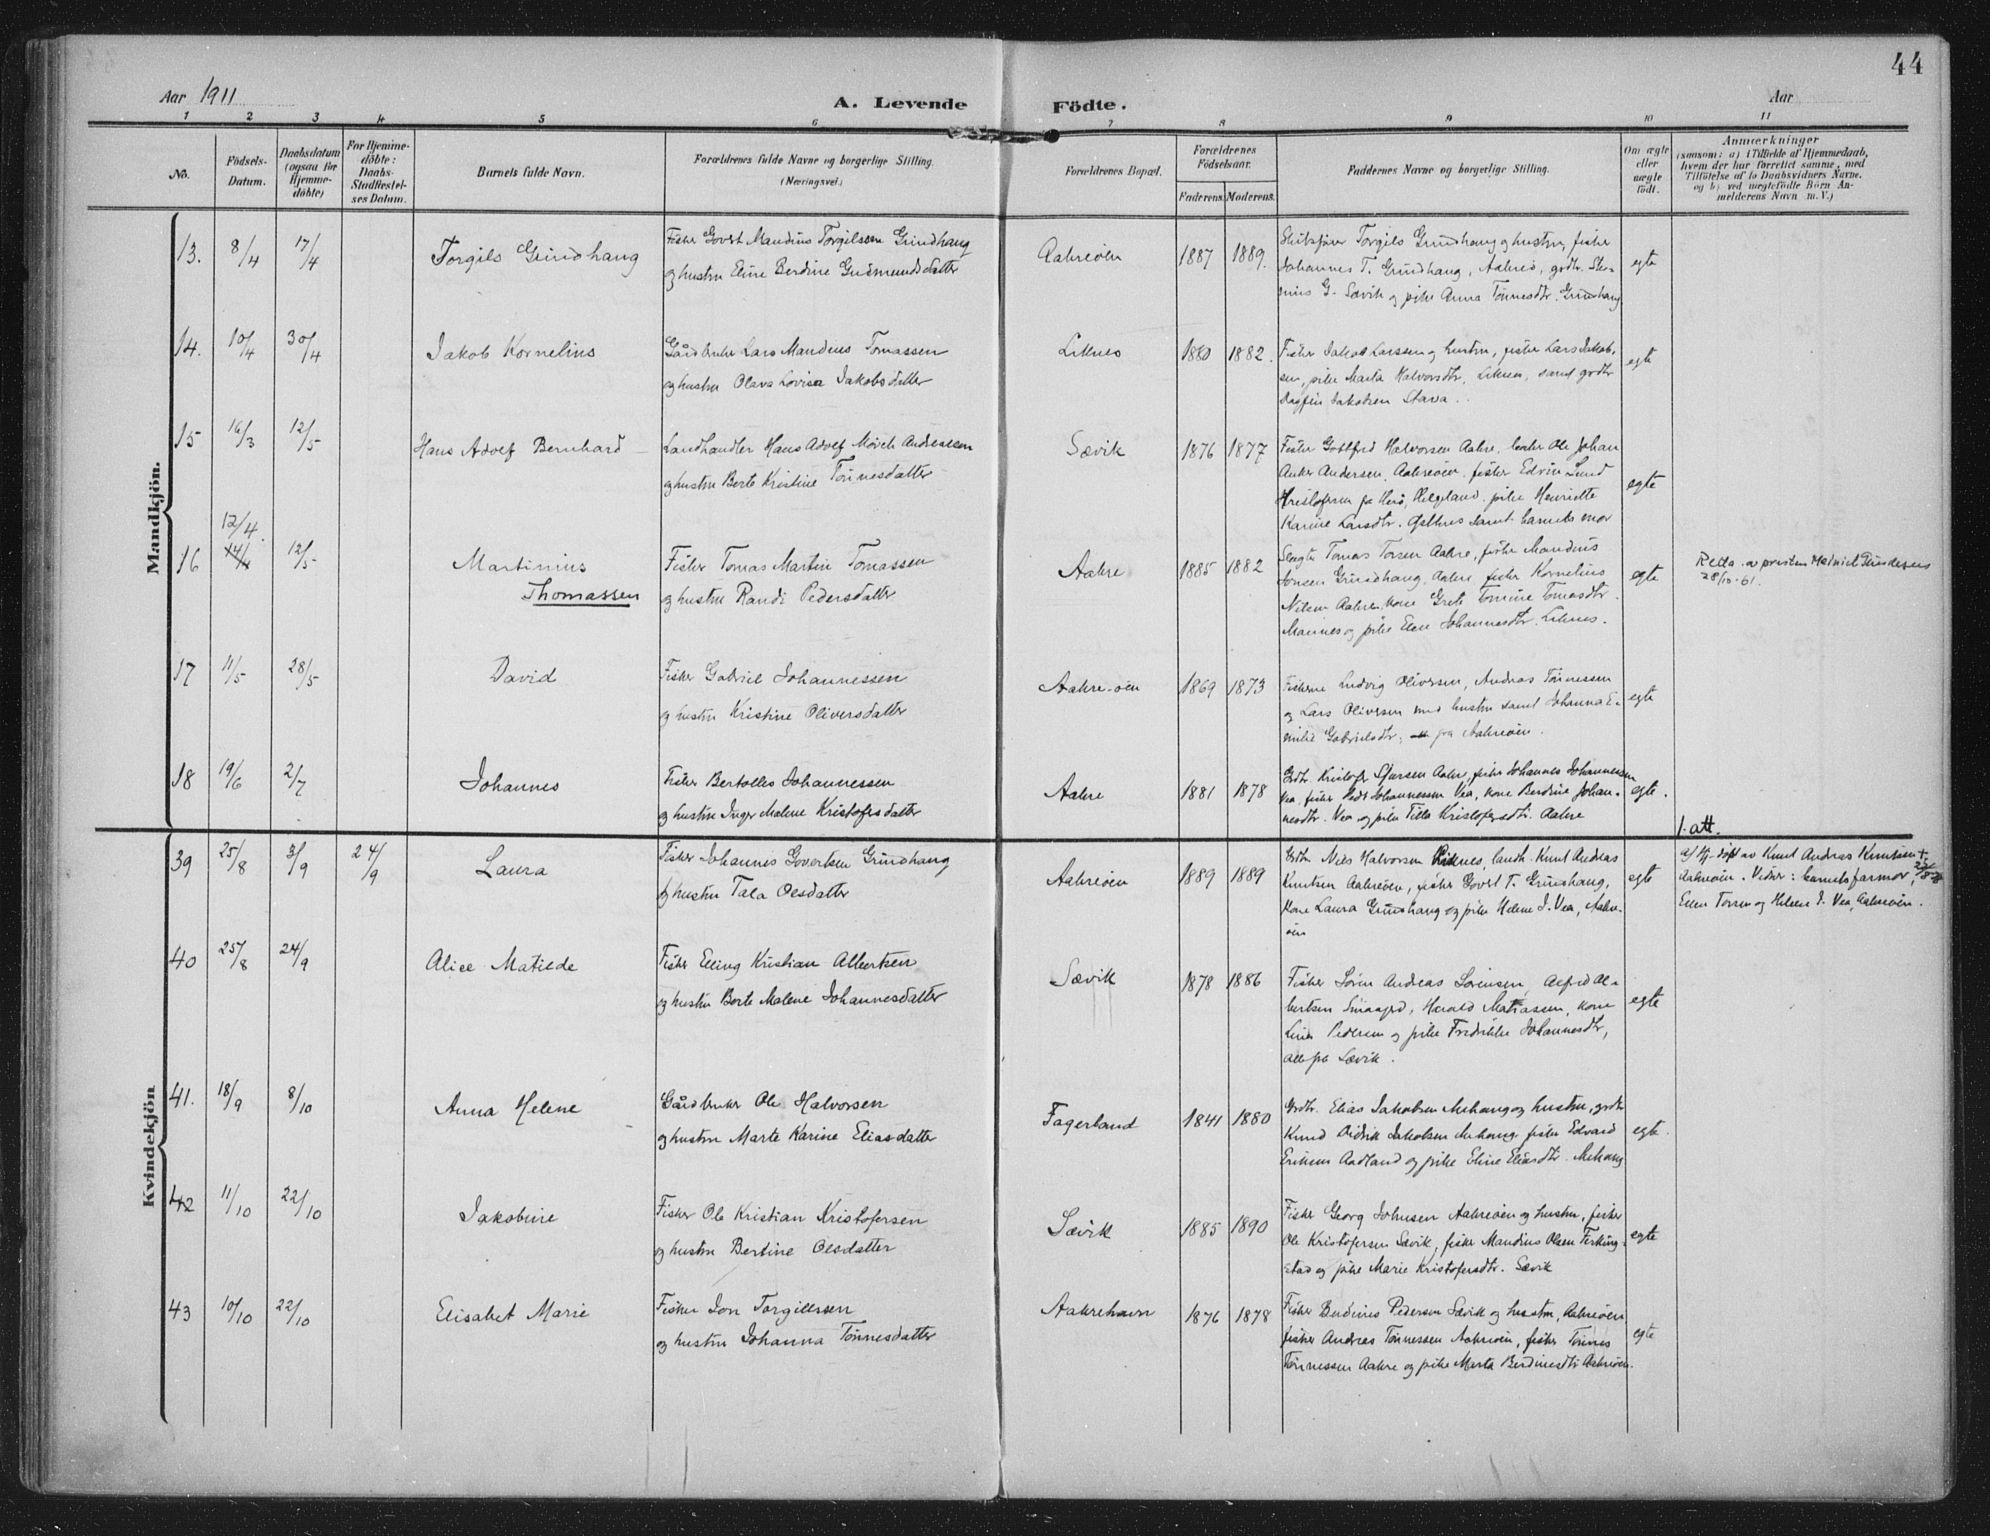 44
Aar 1911
A. Levende Födte.
Aar
1 2 3 4 5 6 7 8 9 10 11
No.
Födsels-Datum.
Daabsdatum (ogsaa for Hjemmedöbte)
For Hjemmedöbte: Daabs-Stadfæstelses Datum.
Barnets fulde Navn.
Forældrenes fulde Navne og borgerlige Stilling.
(Næringsvei.)
Forældrenes Bopæl.
Forældrenes Födselsaar.
Faderens. Moderens.
Faddernes Navne og borgerlige Stilling.
Om ægte eller uægte födt.
Anmærkninger
(saasom: a) i Tilfælde af Hjemmedaab, hvem der har forrettet samme, med Tilföielse af to Daabsvidners Navne. og b) ved uægtefödte Börn Anmelderens Navn m. V.)
Mandkjön.
13. 8/4 17/4 Torgils Grindhang
Fisker Govert Mandius Torgilssen Grindhang
og hustru Eline Berdine Gudmundsdatter
Aakreöen 1887 1889.
Skibsfører Torgils Grindhang og hustru, fisker
Johannes T. Grindhang, Aakreö, grdbr.
G. Sævik og pike Anna Tönnesdtr. Grindhang
egte
14. 10/4 30/4 Jakob Kornelius
Gårdbruker Lars Mandius Tomassen
og hustru Olava Lovisa Jakobsdatter
Liknes 1880 1882.
Fisker Jakob Larssen og hustru, fisker Lars Jakob-
sen, pike Marta Halvorsdtr, Liknes, samt grdbr
Dagfin Jakobsen Stava.
egte
15 16/3 12/5 Hans Adolf Bernhard
Landhandler Hans Adolf Mörch Andreassen
og hustru Berte Kristine Tönnesdatter
Sævik 1876 1877
Fisker Gottfred Halvorsen Aakre, Ole Johan
Anker Andersen, Aakreöen, fisker Edvin Lund
Kristofersen fra Herö, Helgeland, pike Henriette
Karine Larsdtr. samt barnets mor
egte
12/4.
16 14/4 12/5 Martinius
Thomassen
Fisker Tomas Martin Tomassen
og hustru Randi Pedersdatter
Aakre 1885 1882
Tomas Torsen Aakre, fisker Mandius
Jonsen Grindhang, Aakre, fisker Kornelius
Nilsen Aakre, kone Grete Tomine Tomasdtr.
Mannes og pike Elen Johannesdtr. Liknes.
egte
Retta av presten
28/10-61.
17 11/5 28/5 David
Fisker Gabriel Johannessen
og hustru Kristine Oliversdatter
Aakre-öen 1869 1873
Fiskerne Ludvig Oliversen, Andreas Tönnessen
og Lars Oliversen med hustru samt Johanna E-
milie Gabrielsdtr, fra Aakreöen.
egte
18 19/6 2/7 Johannes
Fisker Bertolles Johannessen
og hustru Inger Malene Kristofersdatter
Aakre 1881 1878
Grdbr. Kristofer Sjursen Aakre, fisker Johannes Johannessen
Vea, fisker Peder Johannessen Vea, kone Berdine Johan-
nesdtr. Vea og pike Tilla Kristofersdtr. Aakre
egte.
1. att.
Kvindekjön
39 25/8 3/9 24/9 Laura
Fisker Johannes Govertsen Grindhang
og hustru Tala Olsdatter
Aakreöen 1889 1889
Grdbr. Nils Halvorsen Liknes, landh. Knut Andreas
Knutsen Aakreöen, fisker Govert T. Grindhang,
kone Laura Grindhang og pike Helene I. Vea, Aakre-
öen
egte
a/ Hj. döpt av Knut Andreas Knutsen
Aakreöen. Vidner: barnets farmor,
Ellen Torsen og Helene I. Vea, Aakreöen.
40 25/8 24/9 Alice Matilde
Fisker Elling Kristian Albertsen
og hustru Berte Malene Johannesdatter
Sævik 1878 1886
Fisker Sören Andreas Sörensen, Alfred Al-
bertsen Smaagrd, Harald Matiassen, kone
Lina Pedersen og pike Fredrikke Johannesdtr,
alle fra Sævik.
egte
41. 18/9 8/10 Anna Helene
Gårdbruker Ole Halvorsen
og hustru Marte Karine Eliasdatter
Fagerland 1841 1880
Grdbr. Elias Jakobsen Mehaug og hustru, grdbr
Knud Didrik Jakobsen Mehaug, fisker Edvard
Eriksen Aadland og pike Eline Eliasdtr. Mehaug
egte.
42 11/10 22/10 Jakobine
Fisker Ole Kristian Kristofersen
og hustru Bertine Olsdatter
Sævik 1885 1890
Fisker Georg Johnsen Aakreöen og hustru, fisker
Ole Kristofersen Sævik, fisker Mandius Olsen Ferking-
stad og pike Marie Kristofersdtr. Sævik
egte
43 10/10 22/10 Elisabet Marie
Fisker Jon Torgillssen
og hustru Johanna Tönnesdatter
Aakrehavn 1876 1878
Fisker Berdinius Pedersen Sævik og hustru, Aakreöen
fisker Andreas Tönnessen Aakreöen, fisker Tönnes
Tönnessen Aakre og pike Marta Berdinesdtr Aakreöen.
egte